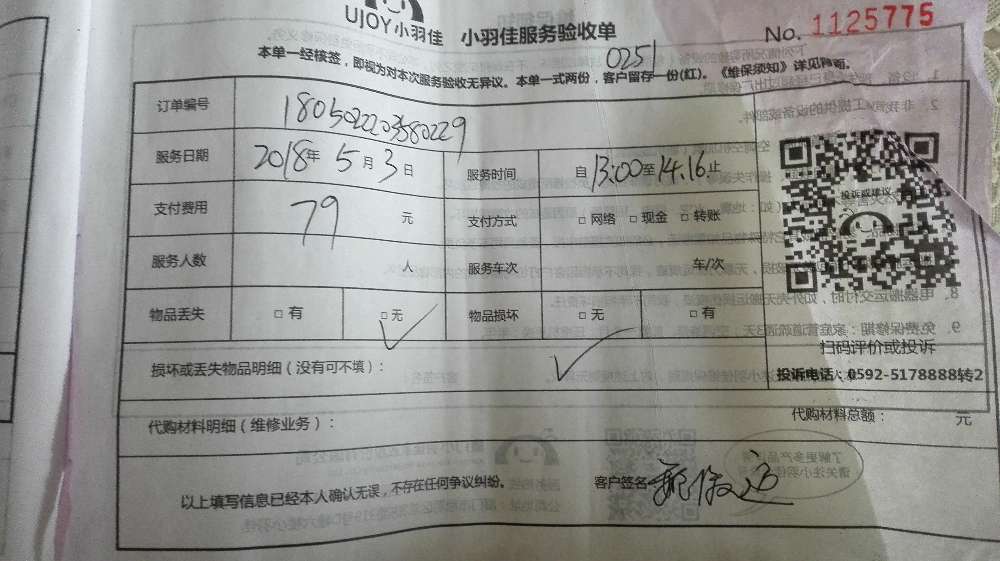 UJOY小羽佳 小羽佳服务验收单
No. 1125775
0251
本单一经核签，即视为对本次服务验收无异议。本单一式两份，客户留存一份(红)。《维保须知》详见背面。
订单编号
服务日期 2018年 5月 3日 服务时间 自 13:00 至 14:16 止
投诉或建议
支付费用 79 元 支付方式 □ 网络 □ 现金 □ 转账
服务人数 人 服务车次 车/次
物品丢失 □ 有 □ 无 物品损坏 □ 无 □ 有
扫码评价或投诉
损坏或丢失物品明细（没有可不填）：
投诉电话：0592-5178888转2
代购材料明细（维修业务）： 代购材料总额： 元
以上填写信息已经本人确认无误，不存在任何争议纠纷。 客户签名